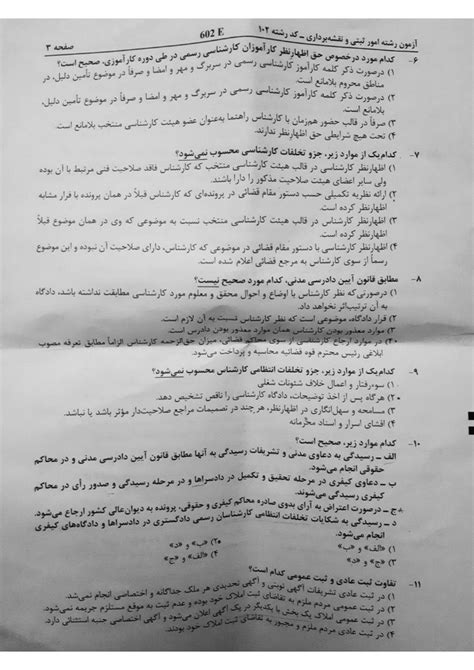 آزمون رشته امور ثبتی و نقشه‌برداری ـ کد رشته ۱۰۲
602 E
صفحه ۳
۶- کدام مورد درخصوص حق اظهارنظر کارآموزان کارشناسی رسمی در طی دوره کارآموزی، صحیح است؟
۱) درصورت ذکر کلمه کارآموز کارشناسی رسمی در سربرگ و مهر و امضا و صرفاً در موضوع تأمین دلیل، در
مناطق محروم بلامانع است.
۲) درصورت ذکر کلمه کارآموز کارشناسی رسمی در سربرگ و مهر و امضا و صرفاً در موضوع تأمین دلیل،
بلامانع است.
۳) صرفاً در قالب حضور هم‌زمان با کارشناس راهنما به‌عنوان عضو هیئت کارشناسی بلامانع است.
۴) تحت هیچ شرایطی حق اظهارنظر ندارند.
۷- کدام‌یک از موارد زیر، جزو تخلفات کارشناسی محسوب نمی‌شود؟
۱) اظهارنظر کارشناسی در قالب هیئت کارشناسی منتخب که کارشناس فاقد صلاحیت فنی مرتبط با آن بوده
ولی سایر اعضای هیئت صلاحیت مذکور را دارا باشند.
۲) ارائه نظریه تکمیلی حسب دستور مقام قضائی در پرونده‌ای که کارشناس قبلاً در همان پرونده با قرار مشابه
اظهارنظر کرده است.
۳) اظهارنظر در قالب هیئت کارشناسی منتخب نسبت به موضوعی که وی در همان موضوع قبلاً
اظهارنظر کرده است.
۴) اظهارنظر کارشناسی با دستور مقام قضائی در موضوعی که کارشناس، دارای صلاحیت آن نبوده و این موضوع
رسماً از سوی کارشناس به مرجع قضائی اعلام شده است.
۸- مطابق قانون آیین دادرسی مدنی، کدام مورد صحیح نیست؟
۱) درصورتی‌که نظر کارشناس با اوضاع و احوال محقق و معلوم مورد کارشناسی مطابقت نداشته باشد، دادگاه
به آن ترتیب‌اثر نخواهد داد.
۲) قرار دادگاه، موضوعی است که نظر کارشناس نسبت به آن لازم است.
۳) موارد معذور بودن کارشناس همان موارد معذور بودن دادرس است.
۴) در موارد ارجاع کارشناسی از سوی محاکم قضائی، میزان حق‌الزحمه کارشناس الزاماً مطابق تعرفه مصوب
ابلاغی رئیس محترم قوه قضائیه محاسبه و پرداخت می‌شود.
۹- کدام‌یک از موارد زیر، جزو تخلفات انتظامی کارشناس محسوب نمی‌شود؟
۱) سوءرفتار و اعمال خلاف شئونات شغلی
۲) هرگاه پس از اخذ توضیحات، دادگاه کارشناسی را ناقص تشخیص دهد.
۳) مسامحه و سهل‌انگاری در اظهارنظر، هر چند در تصمیمات مراجع صلاحیت‌دار مؤثر باشد یا نباشد.
۴) افشای اسرار و اسناد محرمانه
۱۰- کدام موارد زیر، صحیح است؟
الف ـ رسیدگی به دعاوی مدنی و تشریفات رسیدگی به آنها مطابق قانون آیین دادرسی مدنی و در محاکم
حقوقی انجام می‌شود.
ب ـ دعاوی کیفری در مرحله تحقیق و تکمیل در دادسراها و در مرحله رسیدگی و صدور رأی در محاکم
کیفری رسیدگی می‌شوند.
ج ـ درصورت اعتراض به آرای بدوی صادره محاکم کیفری و حقوقی، پرونده به دیوان‌عالی کشور ارجاع می‌شود.
د ـ رسیدگی به شکایات تخلفات انتظامی کارشناسان رسمی دادگستری در دادسراها و دادگاه‌های کیفری
انجام می‌شود.
۱) «الف» و «ب»
۲) «ب» و «د»
۳) «ج» و «د»
۴) «الف» و «ج»
۱۱- تفاوت ثبت عادی و ثبت عمومی کدام است؟
۱) در ثبت عادی تشریفات آگهی نوبتی و آگهی تحدیدی هر ملک جداگانه و اختصاصی انجام نمی‌شد.
۲) در ثبت عمومی مردم ملزم به تقاضای ثبت املاک خود بوده و عدم ثبت به موقع مستلزم جریمه نمی‌شد.
۳) در ثبت عمومی املاک یک بخش با یکدیگر در یک آگهی اعلان می‌شود و آگهی اختصاصی جنبه استثنائی دارد.
۴) در ثبت عادی مردم ملزم و مجبور به تقاضای ثبت املاک خود بودند.